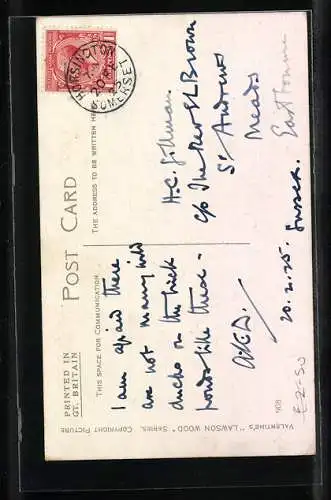 POST CARD
PRINTED IN
GT. BRITAIN
THIS SPACE FOR COMMUNICATION
THE ADDRESS TO BE WRITTEN HERE
HORSINGTON
SOMERSET
I am afraid there
are not many wild
ducks on the
ponds like these -
20.2.25.
H.C. Gillman
c/o The Rev E L Brown
St Andrews
Meads
Eastbourne
Sussex.
VALENTINE'S "LAWSON WOOD" SERIES. COPYRIGHT PICTURE